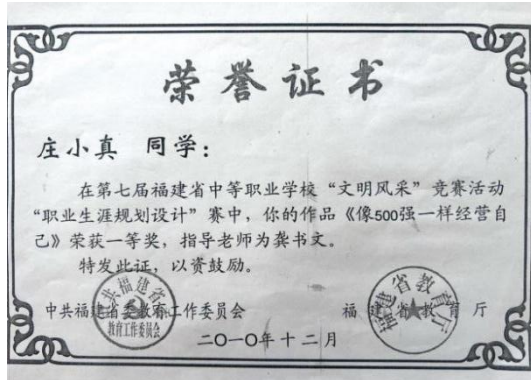 荣誉证书
庄小真 同学：
在第七届福建省中等职业学校“文明风采”竞赛活动
“职业生涯规划设计”赛中，你的作品《像500强一样经营自
己》荣获一等奖，指导老师为龚书文。
特发此证，以资鼓励。
中共福建省委教育工作委员会 福建省教育厅
二〇一〇年十二月
中共福建省委
教育工作委员会
福建省教育厅